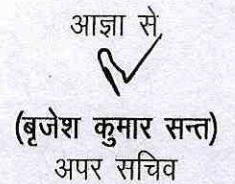 आज्ञा से,
(बृजेश कुमार सन्त)
अपर सचिव